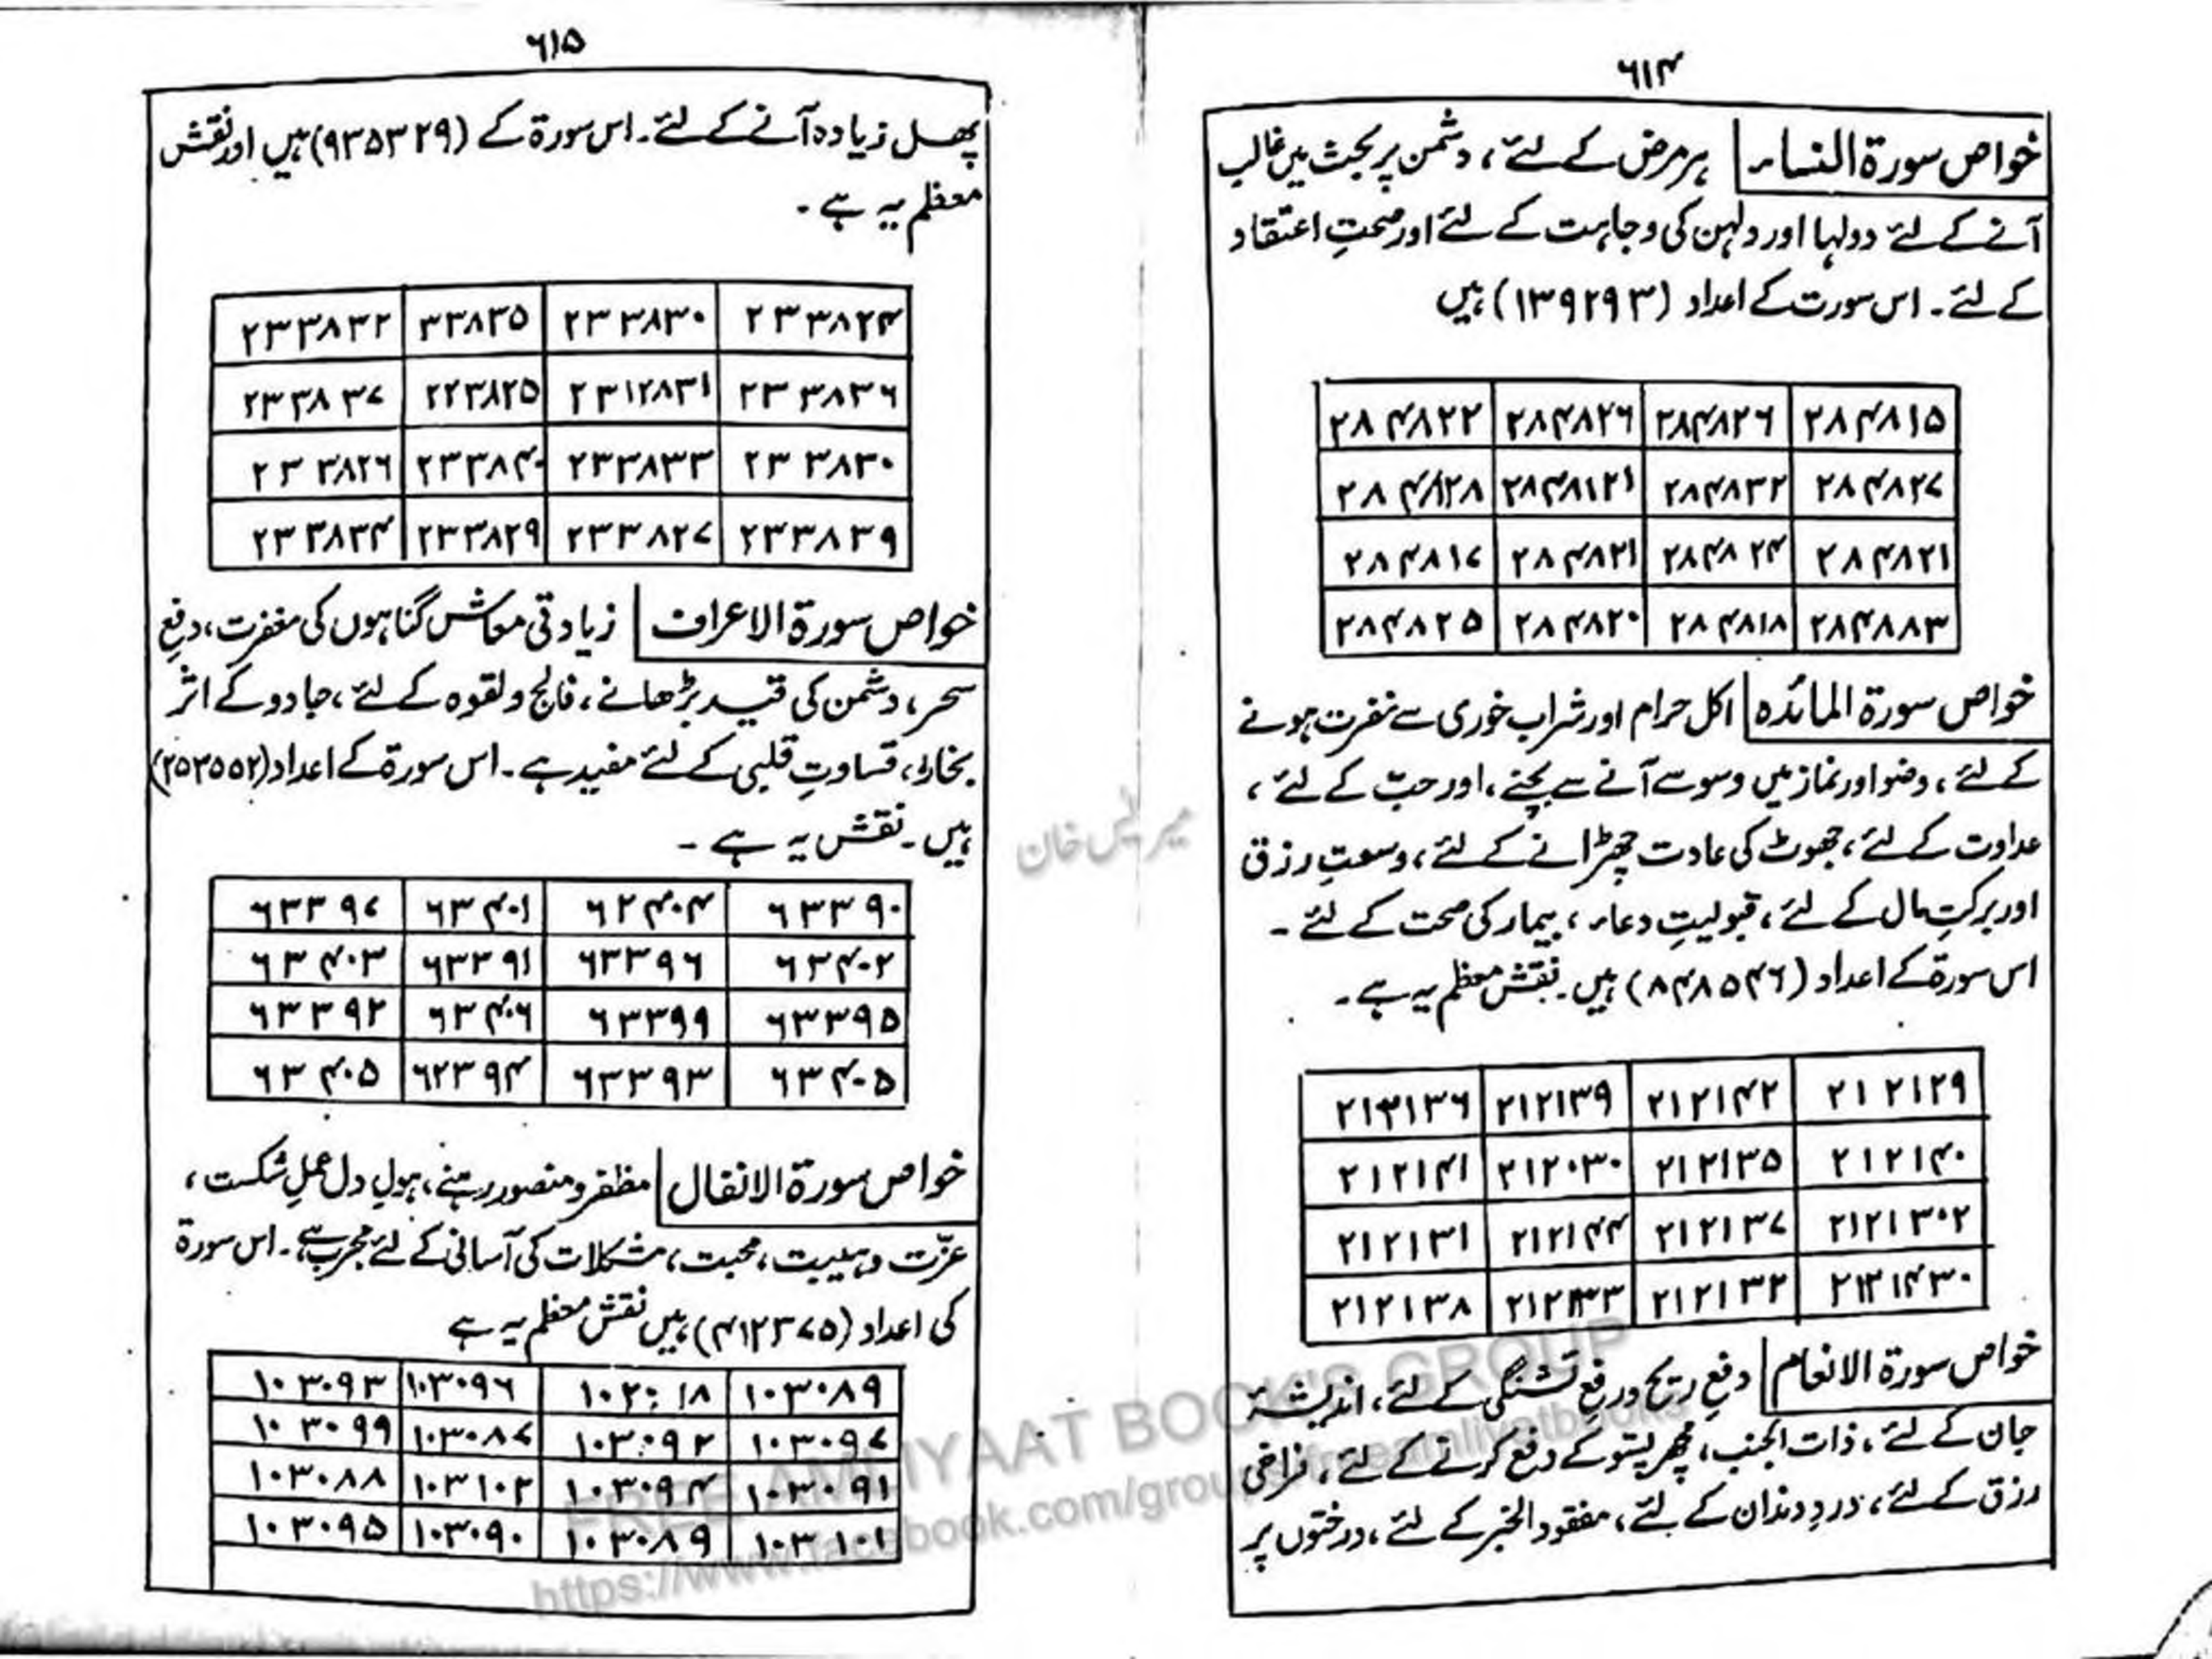 ۶۱۴
خواص سورۃ النساء ہر مرض کے لئے، دشمن پر بحث میں غالب
آنے کے لئے دولہا اور دلہن کی وجاہت کے لئے اور صحتِ اعتقاد
کے لئے۔ اس سورت کے اعداد (۱۳۹۲۹۳) ہیں
۲۸۴۸۲۲ ۲۸۴۸۲۶ ۲۸۴۸۲۶ ۲۸۴۸۱۵
۲۸۴۸۲۸ ۲۸۴۸۱۲۱ ۲۸۴۸۳۲ ۲۸۴۸۲۷
۲۸۴۸۱۷ ۲۸۴۸۲۱ ۲۸۴۸۲۴ ۲۸۴۸۲۱
۲۸۴۸۲۵ ۲۸۴۸۲۰ ۲۸۴۸۱۸ ۲۸۴۸۸۳
خواص سورۃ المائدہ اکل حرام اور شراب خوری سے نفرت ہونے
کے لئے، وضو اور نماز میں وسوسے آنے سے بچنے، اور حبّ کے لئے،
عداوت کے لئے، جھوٹ کی عادت چھڑانے کے لئے، وسعتِ رزق
اور برکتِ مال کے لئے، قبولیتِ دعاء، بیمار کی صحت کے لئے۔
اس سورۃ کے اعداد (۸۴۸۵۴۶) ہیں۔ نقش معظم یہ ہے۔
۲۱۳۱۳۶ ۲۱۲۱۳۹ ۲۱۲۱۴۲ ۲۱۲۱۲۹
۲۱۲۱۴۱ ۲۱۲۰۳۰ ۲۱۲۱۳۵ ۲۱۲۱۴۰
۲۱۲۱۳۱ ۲۱۲۱۴۴ ۲۱۲۱۳۷ ۲۱۲۱۳۰۲
۲۱۲۱۳۸ ۲۱۲۱۳۳ ۲۱۲۱۳۲ ۲۱۲۱۴۳۰
خواص سورۃ الانعام دفعِ ریح ورفعِ تشنگی کے لئے، اندیشۂ
جان کے لئے، ذات الجنب، مچھر پسّو کے دفع کرنے کے لئے، فراخی
رزق کے لئے، دردِ دندان کے لئے، مفقود الخبر کے لئے، درختوں پر
۶۱۵
پھل زیادہ آنے کے لئے۔ اس سورۃ کے (۹۳۵۳۲۹) ہیں اور نقش
معظم یہ ہے۔
۲۳۳۸۳۲ ۳۳۸۳۵ ۲۳۳۸۳۰ ۲۳۳۸۲۴
۲۳۳۸۳۷ ۲۲۳۸۲۵ ۲۳۱۲۸۳۱ ۲۳۳۸۳۶
۲۳۳۸۲۶ ۲۳۳۸۴۰ ۲۳۳۸۳۳ ۲۳۳۸۳۰
۲۳۳۸۳۴ ۲۳۳۸۲۹ ۲۳۳۸۲۷ ۲۳۳۸۳۹
خواص سورۃ الاعراف زیادتی معاش گناہوں کی مغفرت، دفعِ
سحر، دشمن کی قید بڑھانے، فالج و لقوہ کے لئے، جادو کے اثر
بخار، قساوتِ قلبی کے لئے مفید ہے۔ اس سورۃ کے اعداد (۲۵۳۵۵۲)
ہیں۔ نقش یہ ہے۔
۶۳۳۹۷ ۶۳۴۰۱ ۶۲۴۰۴ ۶۳۳۹۰
۶۳۴۰۳ ۶۳۳۹۱ ۶۳۳۹۶ ۶۳۴۰۲
۶۳۳۹۲ ۶۳۴۰۶ ۶۳۳۹۹ ۶۳۳۹۵
۶۳۴۰۵ ۶۲۳۹۴ ۶۳۳۹۳ ۶۳۴۰۵
خواص سورۃ الانفال مظفر و منصور رہنے، ہولِ دل عملِ شکست،
عزّت و ہیبت، محبت، مشکلات کی آسانی کے لئے مجرب ہے۔ اس سورۃ
کی اعداد (۴۱۲۳۷۵) ہیں نقش معظم یہ ہے
۱۰۳۰۹۳ ۱۰۳۰۹۶ ۱۰۳۰۸۹
۱۰۳۰۹۹ ۱۰۳۰۸۷ ۱۰۳۰۹۲ ۱۰۳۰۹۷
۱۰۳۰۸۸ ۱۰۳۱۰۲ ۱۰۳۰۹۴ ۱۰۳۰۹۱
۱۰۳۰۹۵ ۱۰۳۰۹۰ ۱۰۳۰۸۹ ۱۰۳۱۰۱
خان
FREE AMLIYAAT BOOK'S GROUP
https://www.facebook.com/groups/freeamliyatbooks